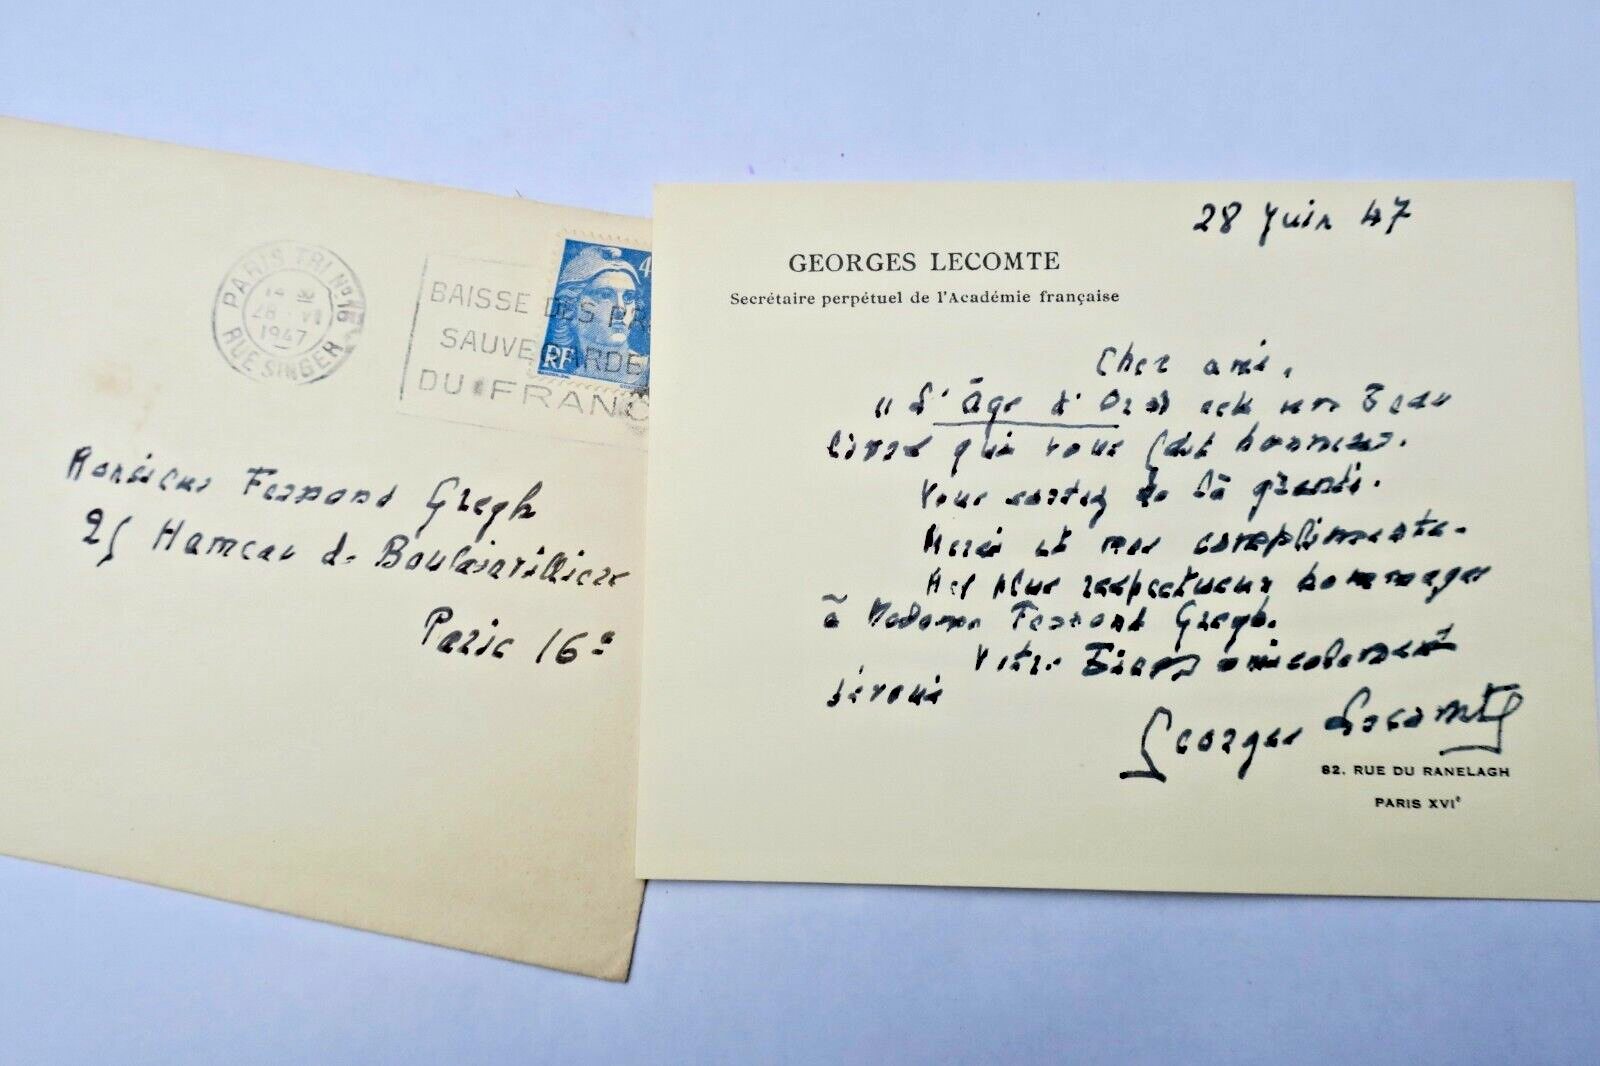 PARIS TRI Nº 16
28 VI
1947
RUE SINGER
BAISSE DES PR
SAUVEGARDE
DU FRANC
4
RF
Monsieur Fernand Gregh
25 Hameau de Boulainvilliers
Paris 16e
28 Juin 47
GEORGES LECOMTE
Secrétaire perpétuel de l'Académie française
Cher ami,
"L'Âge d'Or" est un beau
livre qui vous fait honneur.
Vous restez de la
Merci et mes compliments.
Mes plus respectueux hommages
à Madame Fernand Gregh.
Votre bien amicalement
dévoué
Georges Lecomte
82, RUE DU RANELAGH
PARIS XVIe